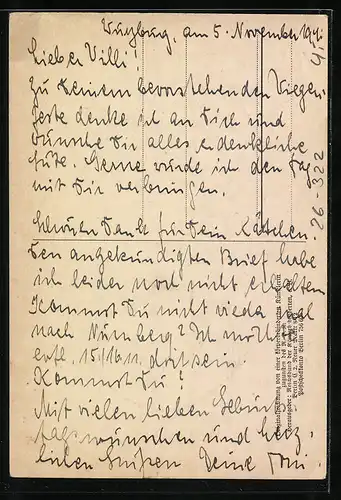 Würzburg, am 5. November 194
Lieber Willi!
Zu Deinem bevorstehenden Wiegen-
feste denke ich an Dich und
wünsche Dir alles erdenkliche
Gute. Gerne würde ich den Tag
mit Dir verbringen.
Schönen Dank für Dein Kärtchen.
Den angekündigten Brief habe
ich leider noch nicht erhalten
Kommst Du nicht wieder mal
nach Nürnberg? Ich
15./16.11. dort sein.
Kommst Du?
Mit vielen lieben Geburts-
tagswünschen und herz-
lichen Grüßen Deine
26-322
Originalzeichnung von einer
Herausgeber: Reichsbund der
Postscheckkonto Berlin